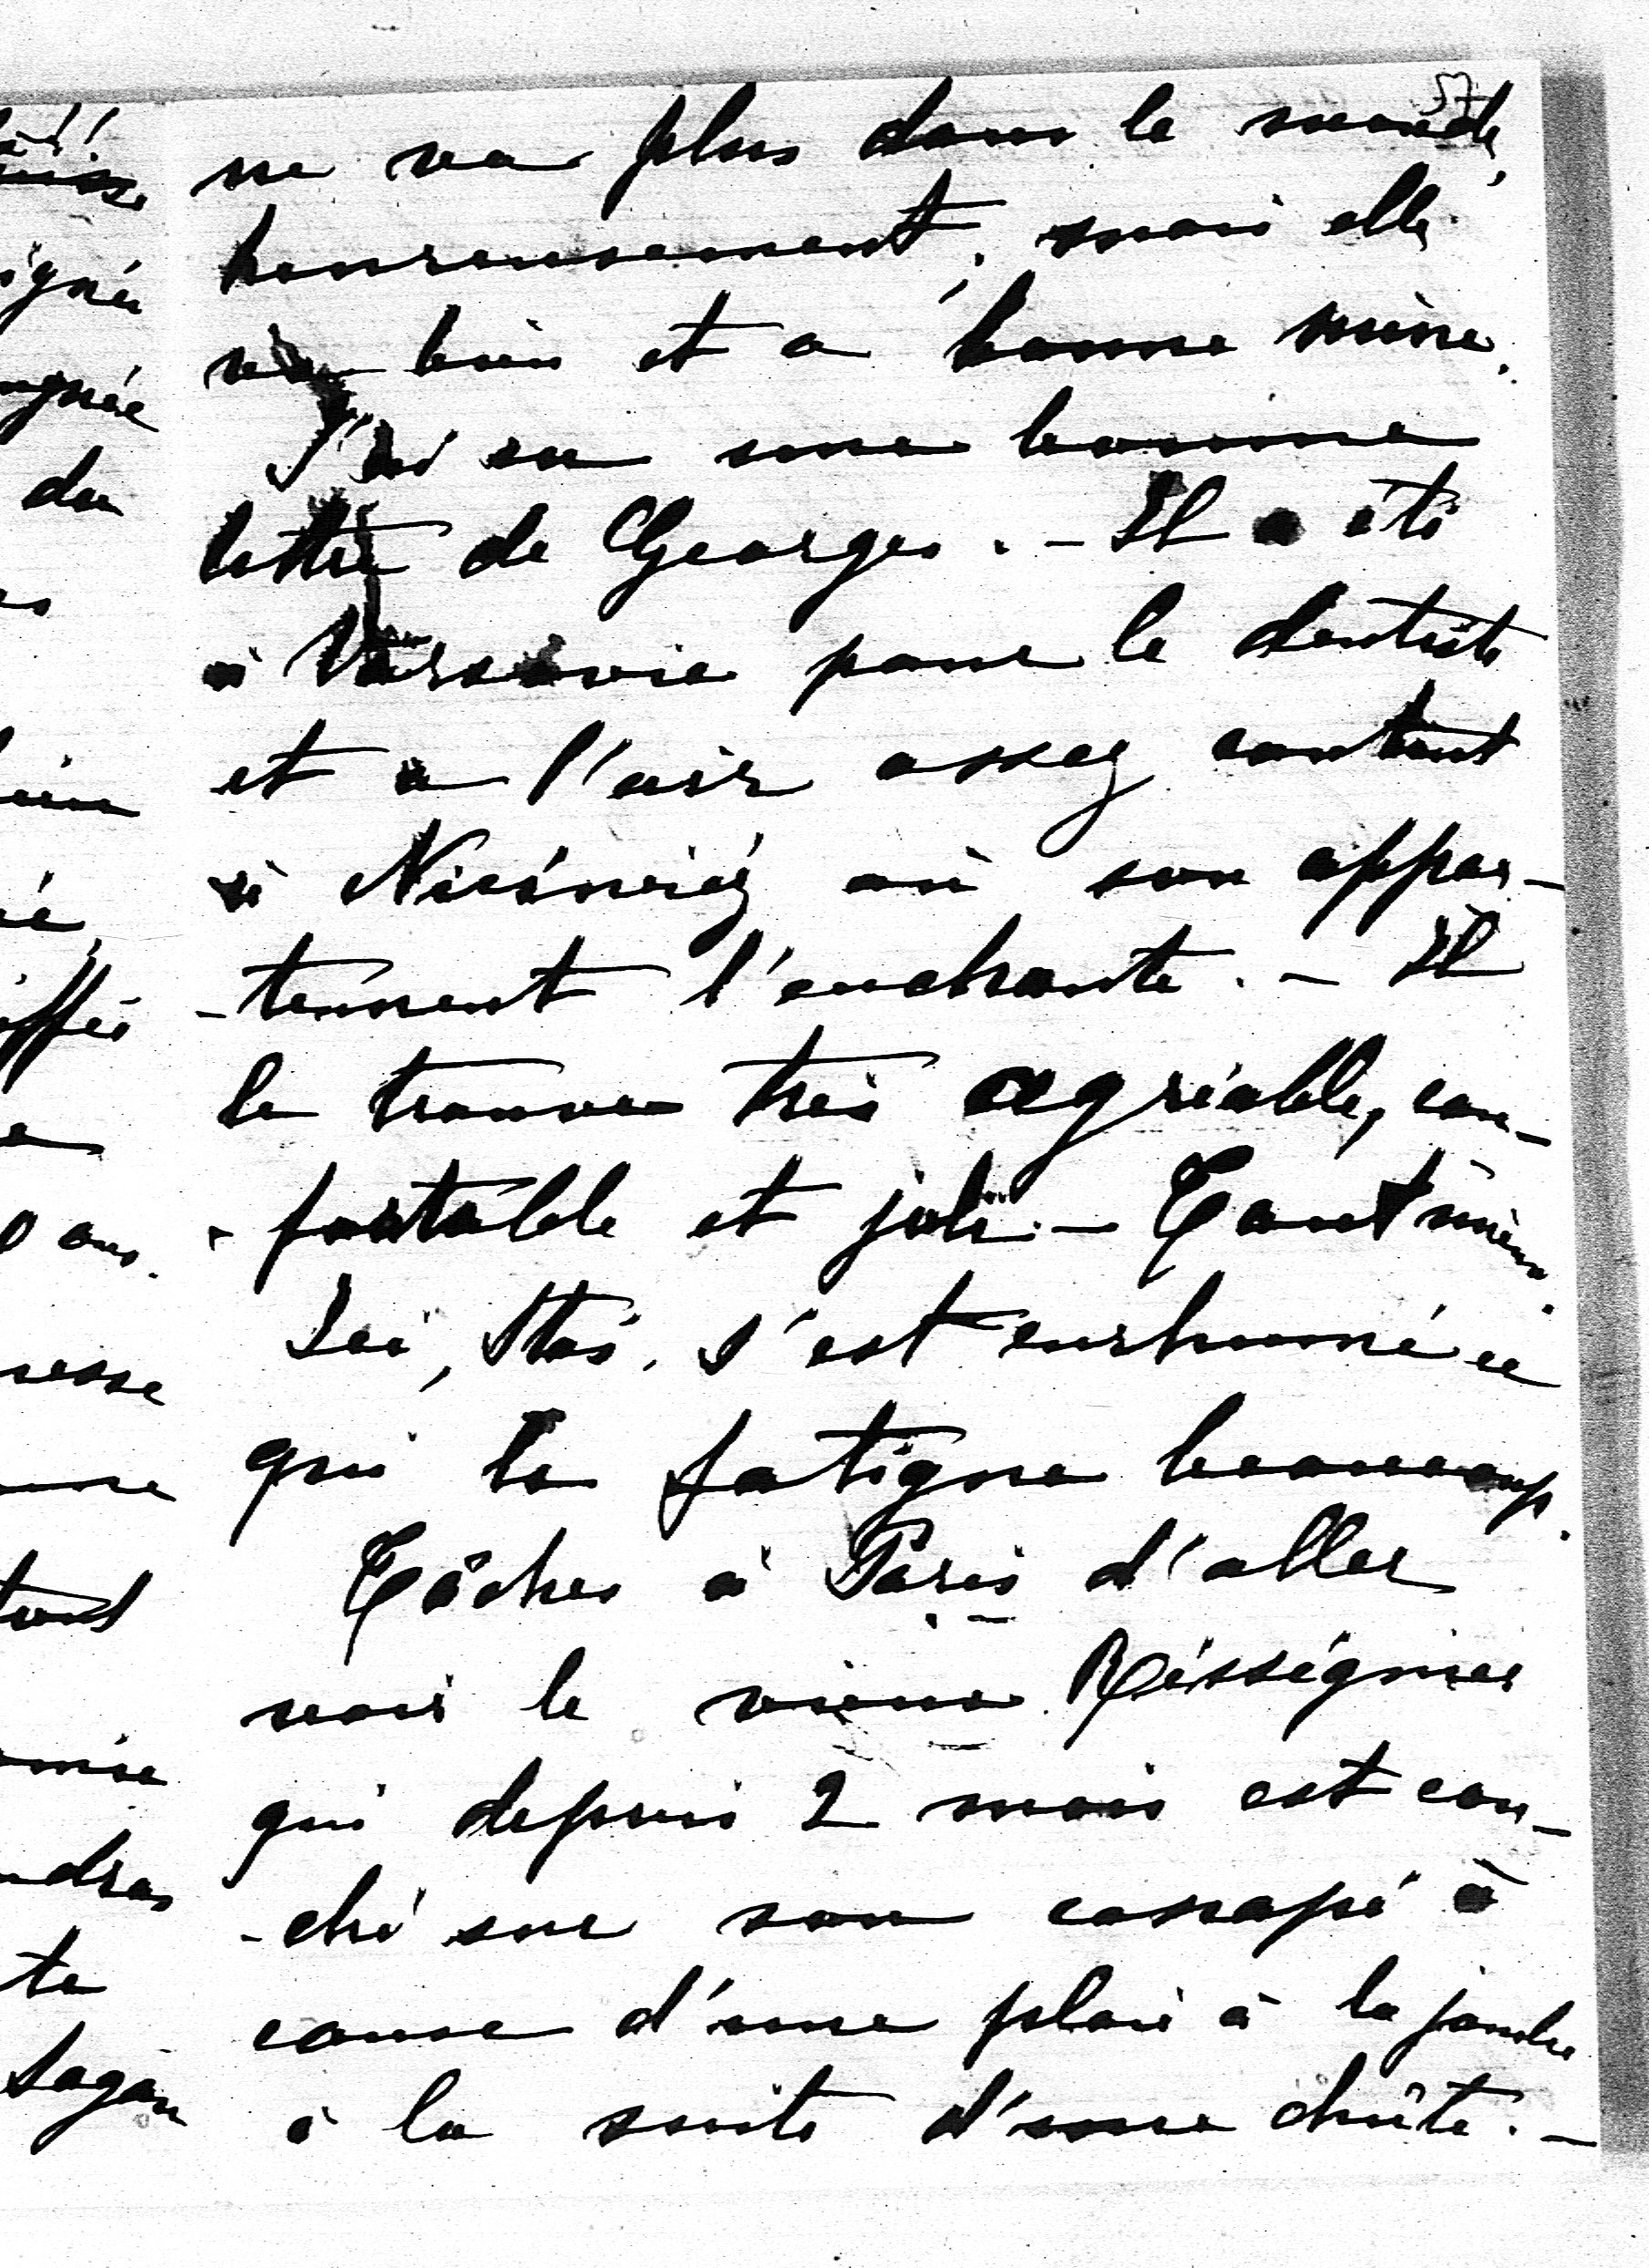 57
ne va plus dans le monde,
heureusement, mais elle
va bien et a bonne mine.
J'ai eu une bonne
lettre de Georges. - Il a été
à Varsovie pour le dentiste
et a l'air assez content
à Nieśwież où son appar-
-tement l'enchante. - Il
le trouve très agréable, con-
-fortable et joli. - Tant mieux.
Ici, Staś, s'est enrhumé ce
qui le fatigue beaucoup.
Tâches à Paris d'aller
voir le vieux Rességuier
qui depuis 2 mois est cou-
-ché sur son canapé à
cause d'une plaie à la jambe
à la suite d'une chûte. -